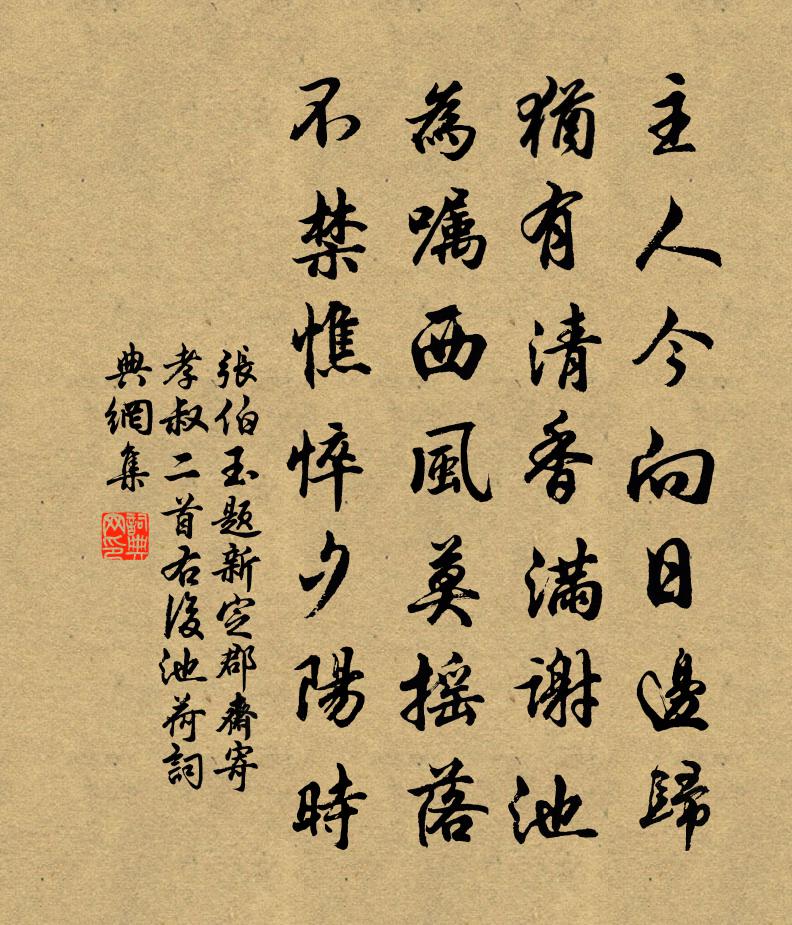 主人今向日邊歸
猶有清香滿謝池
為嘱西風莫摇落
不禁憔悴夕陽時
張伯玉題新定郡齋寄
孝叔二首右後池荷詞
典網集
詞典網印